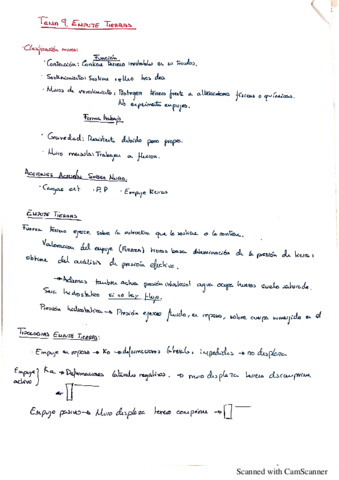 Tema 9. Empuje Tierras
·Clasificación muros:
Función
·Contención: Contiene terreno inestable en su trasdós.
·Sostenimiento: Sostiene relleno tras dos
·Muros de revestimiento: Protegen terreno frente a alteraciones físicas o químicas.
No experimenta empujes.
Forma trabajo
·Gravedad: Resistente debido peso propio.
·Muro ménsula: Trabajan a flexión.
Acciones Actúan Sobre Muro:
·Cargas ext ·P.P ·Empuje tierras
Empuje Tierras
Fuerza terreno ejerce sobre la estructura que lo sostiene o lo contiene.
Valoración del empuje (Fuerza) tierras basa determinación de la presión de tierras
obtiene del análisis de presión efectiva.
→Además también actúa presión intersticial agua ocupa huecos suelo saturado.
Será hidrostática si no hay flujo.
Presión hidrostática → Presión ejerce fluido, en reposo, sobre cuerpo sumergido en él
Tipologías Empuje Tierras:
Empuje en reposo → Ko → deformaciones laterales impedidas → no desplaza
Empuje activo } Ka → Deformaciones laterales negativas. → muro desplaza terreno descomprime
Empuje pasivo → Muro desplaza terreno comprime →
Scanned with CamScanner